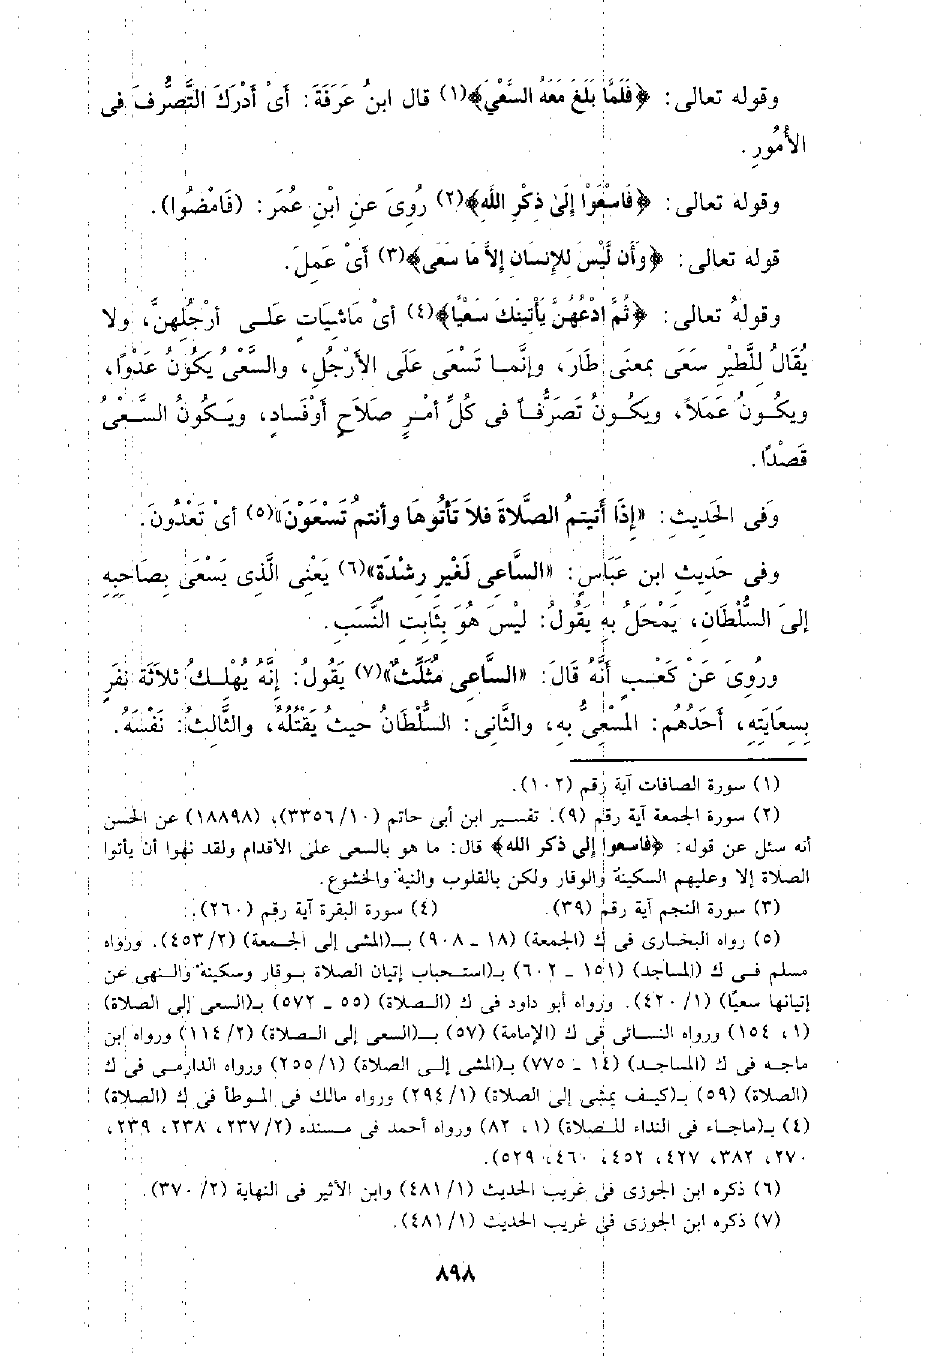 وقوله تعالى: ﴿فَلَمَّا بَلَغَ مَعَهُ السَّعْيَ﴾(١) قال ابنُ عَرَفَةَ: أَىْ أَدْرَكَ التَّصَرُّفَ فى
الأُمُورِ.
وقوله تعالى: ﴿فَاسْعَوْا إِلَىٰ ذِكْرِ اللَّهِ﴾(٢) رُوِىَ عَنِ ابْنِ عُمَرَ: (فَامْضُوا).
قوله تعالى: ﴿وَأَن لَّيْسَ للإِنسَانِ إِلاَّ مَا سَعَى﴾(٣) أَىْ عَمِلَ.
وقولهُ تعالى: ﴿ثُمَّ ادْعُهُنَّ يَأْتِينَكَ سَعْيًا﴾(٤) أىْ مَاشِيَاتٍ عَلَى أَرْجُلِهِنَّ، ولا
يُقَالُ لِلطَّيْرِ سَعَى بمعنَى طَارَ، وإنَّمـا تَسْعَى عَلَى الأَرْجُلِ، والسَّعْىُ يَكُونُ عَدْوًا،
ويكُـونُ عَمَلاً، ويَكُـونُ تَصَرُّفـًا فى كُلِّ أمْـرٍ صَلاَحٍ أَوْفَساد، ويَـكُونُ السَّـعْىُ
قَصْدًا.
وَفى الحَديثِ: «إِذَا أَتيتمُ الصَّلاةَ فَلاَ تَأْتُوهَا وأنتمْ تَسْعَوْنَ»(٥) أىْ تَعْدُونَ.
وفى حَدِيثِ ابنِ عَبَّاسٍ: «السَّاعِى لَغَيْرِ رِشْدَة»(٦) يَعْنِى الَّذِى يَسْعَى بِصَاحِبِهِ
إلىَ السُّلْطَانِ، يَمْحَلُ بِهِ يَقُولُ: لَيْسَ هُوَ بِثَابِتِ النَّسَبِ.
ورُوِىَ عَنْ كَعْـبٍ أَنَّهُ قَالَ: «السَّاعِى مُثَلِّثٌ»(٧) يَقُولُ: إِنَّهُ يُهْلِـكُ ثلاثَةَ نَفَرٍ
بِسِعَايَتِهِ، أَحَدُهُم: المَسْعِىُّ بِهِ، والثَّانِى: السُّلْطَانُ حيثُ يَقْتُلُهُ، والثَّالثُ: نَفْسَهُ.
(١) سورة الصافات آية رقم (١٠٢).
(٢) سورة الجمعة آية رقم (٩). تفسير ابن أبى حاتم (٣٣٥٦/١٠)، (١٨٨٩٨) عن الحسن
أنه سئل عن قوله: ﴿فاسعوا إلى ذكر الله﴾ قال: ما هو بالسعى على الأقدام ولقد نهوا أن يأتوا
الصلاة إلا وعليهم السكينة والوقار ولكن بالقلوب والنية والخشوع.
(٣) سورة النجم آية رقم (٣٩). (٤) سورة البقرة آية رقم (٢٦٠).
(٥) رواه البخارى فى ك (الجمعة) (١٨ - ٩٠٨) بـ(المشى إلى الجمعة) (٤٥٣/٢). ورواه
مسلم فى ك (المساجد) (١٥١ - ٦٠٢) بـ(استحباب إتيان الصلاة بوقار وسكينة والنهى عن
إتيانها سعيًا) (٤٢٠/١). ورواه أبو داود فى ك (الصلاة) (٥٥ - ٥٧٢) بـ(السعى إلى الصلاة)
(١، ١٥٤) ورواه النسائى فى ك (الإمامة) (٥٧) بـ(السعى إلى الصلاة) (١١٤/٢) ورواه ابن
ماجه فى ك (المساجد) (١٤ - ٧٧٥) بـ(المشى إلى الصلاة) (٢٥٥/١) ورواه الدارمى فى ك
(الصلاة) (٥٩) بـ(كيف يمشى إلى الصلاة) (٢٩٤/١) ورواه مالك فى الموطأ فى ك (الصلاة)
(٤) بـ(ماجاء فى النداء للصلاة) (١، ٨٢) ورواه أحمد فى مسنده (٢٣٧/٢، ٢٣٨، ٢٣٩،
٢٧٠، ٣٨٢، ٤٢٧، ٤٥٢، ٤٦٠، ٥٢٩).
(٦) ذكره ابن الجوزى فى غريب الحديث (٤٨١/١) وابن الأثير فى النهاية (٣٧٠/٢).
(٧) ذكره ابن الجوزى فى غريب الحديث (٤٨١/١).
٨٩٨